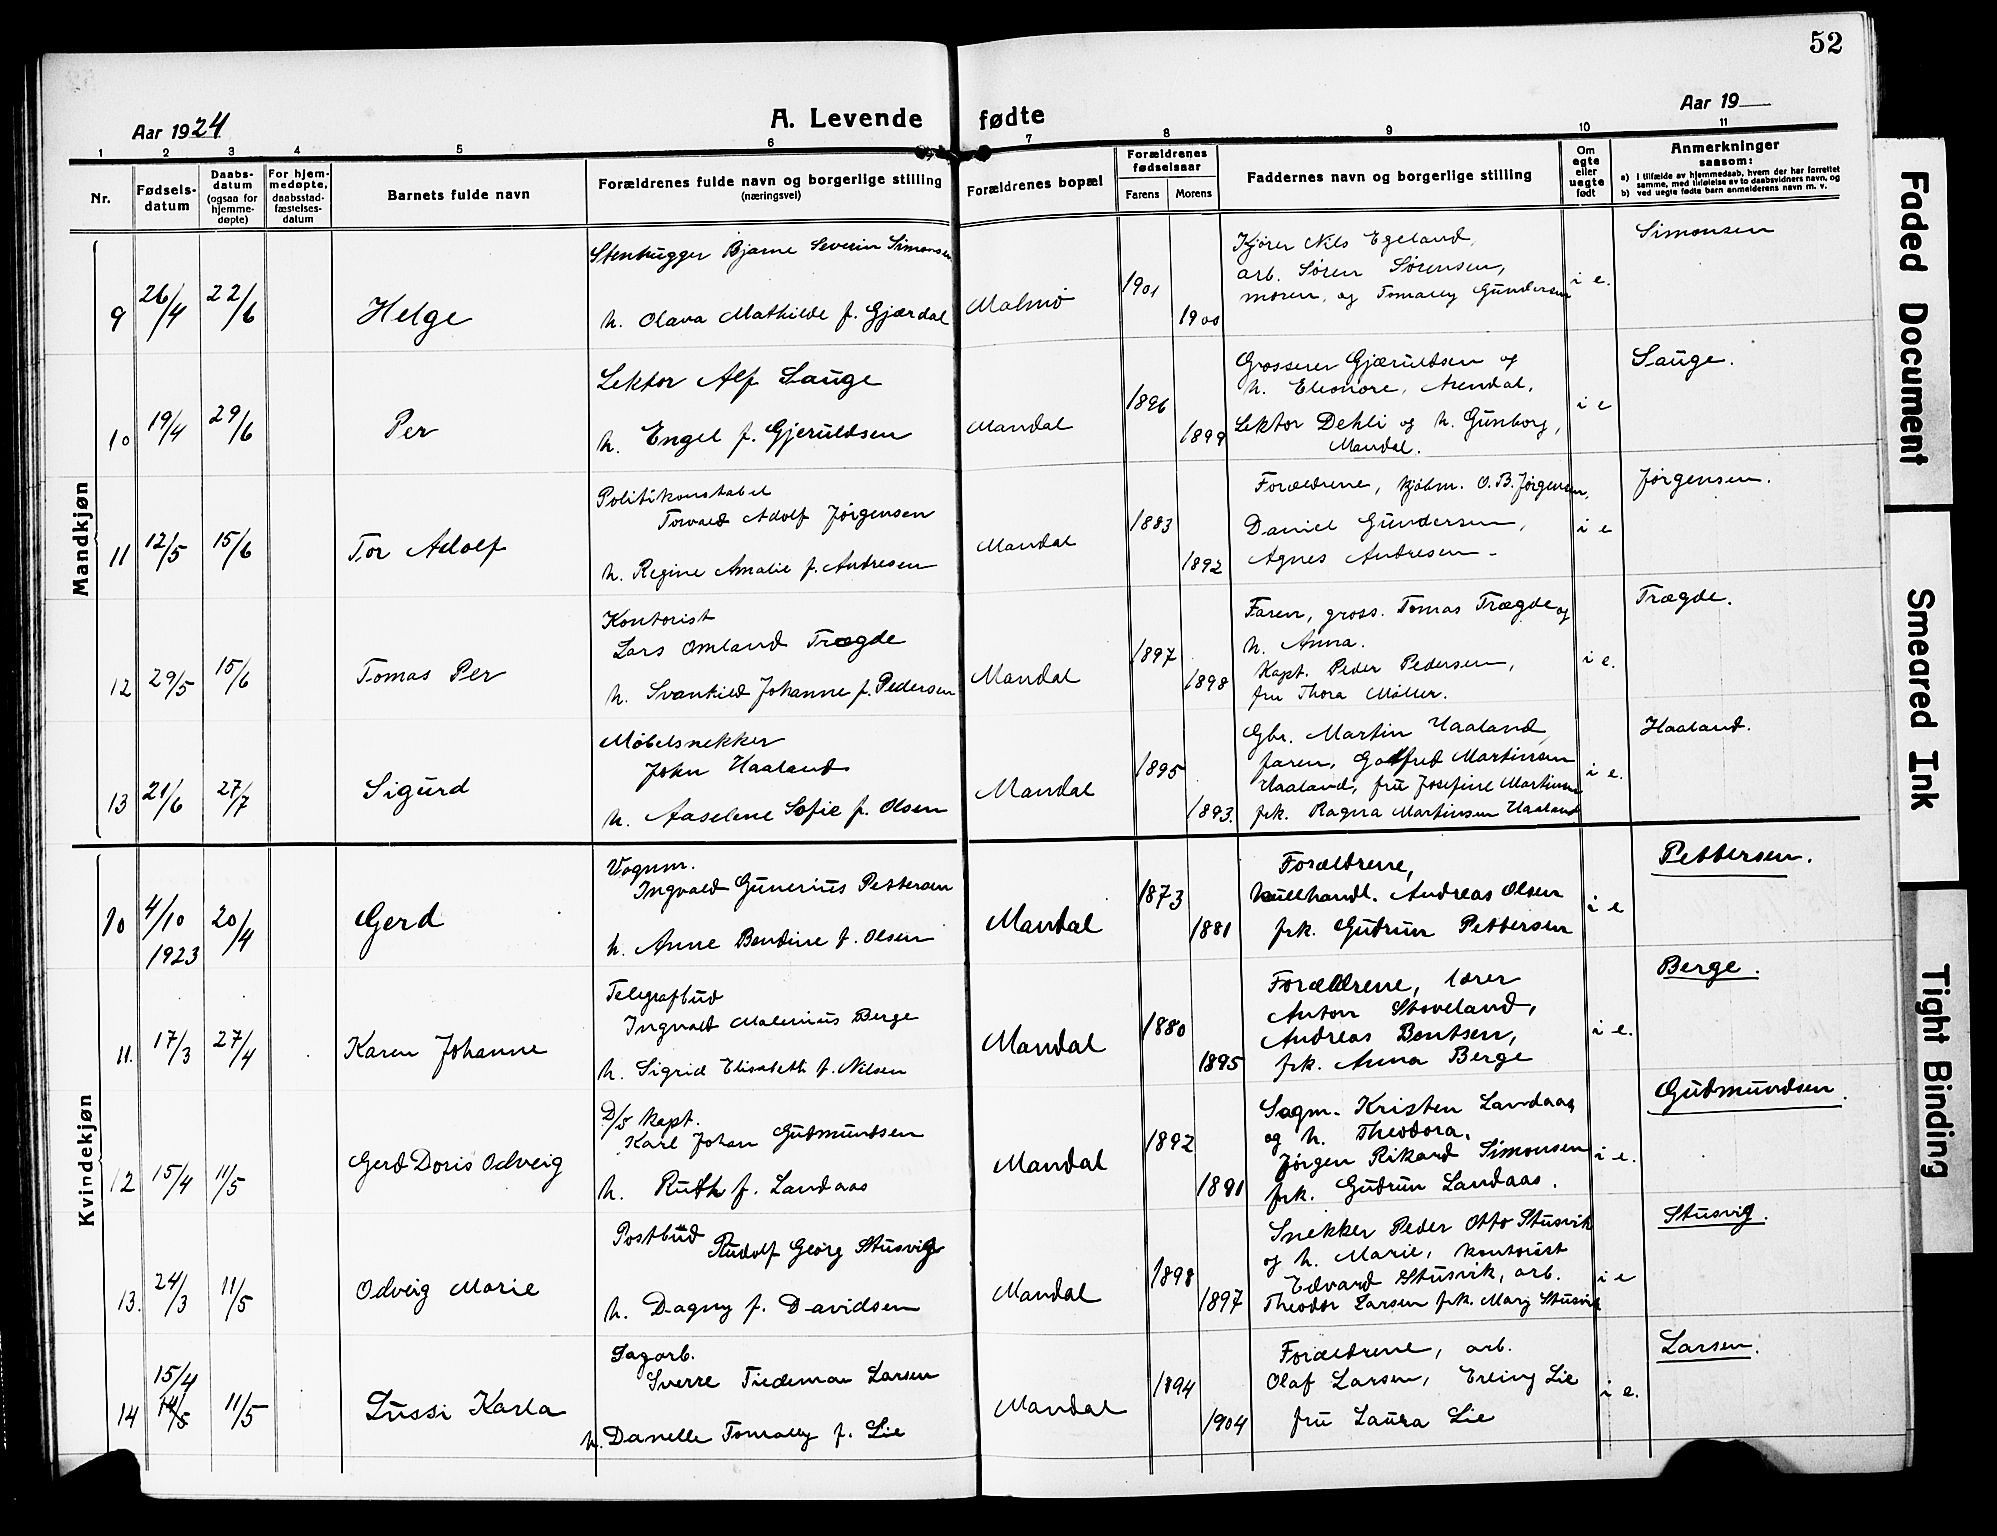 52
Aar 1924
A. Levende fødte
Aar 19
1 2 3 4 5 6 7 8 9 10 11
Nr.
Fødsels-
datum
Daabs-
datum
(ogsaa for
hjemme-
døpte)
For hjem-
medøpte,
daabsstad-
fæstelses-
datum
Barnets fulde navn
Forældrenes fulde navn og borgerlige stilling
(næringsvei)
Forældrenes bopæl
Forældrenes
fødselsaar
Farens
Morens
Faddernes navn og borgerlige stilling
Om
egte
eller
uegte
født
Anmerkninger
saasom:
a) i tilfælde av hjemmedaab, hvem der har forrettet
samme, med tilføielse av to daabsvidners navn, og
b) ved uegte fødte barn anmelderens navn m. v.
Mandkjøn
9 26/4 22/6 Helge
Stenhugger Bjarne Severin Simonsen
h. Olava Mathilde f. Gjærdal
Malmø
1901
1900
Kjører Nils Egeland,
arb. Søren Sørensen,
moren, og Tomally Gundersen
i e.
Simonsen
10 19/4 29/6 Per
Lektor Alf Sauge
h. Engel f. Gjeruldsen
Mandal
1896
1899
Grosserer Gjæruldsen og
h. Eleonore, Arendal,
Lektor Dehli og h. Gunborg,
Mandal.
i e
Sauge.
11 12/5 15/6 Tor Adolf
Politikonstabel
Torvald Adolf Jørgensen
h. Regine Amalie f. Andresen
Mandal
1883
1892
Forældrene, kjøbm. O.B. Jørgensen,
Daniel Gundersen,
Agnes Andresen -
i e
Jørgensen.
12 29/5 15/6 Tomas Per
Kontorist
Lars Omland Trægde
h. Svanhild Johanne f. Pedersen
Mandal
1897
1898
Faren, gross. Tomas Trægde og
h. Anna.
Kapt. Peder Pedersen,
fru Thora Møller.
i e.
Trægde.
13 21/6 27/7 Sigurd
Møbelsnekker
John Haaland
h. Aaselene Sofie f. Olsen
Mandal
1895
1893.
Gbr. Martin Haaland,
faren, Gotfred Martinsen
Haaland, fru Josefine Martinsen
frk. Ragna Martinsen Haaland
i e.
Haaland.
Kvindekjøn
10 4/10 1923 20/4 Gerd
Vognm.
Ingvald Gunerius Pettersen
h. Anne Bendine f. Olsen
Mandal
1873
1881
Forældrene,
kullhandl. Andreas Olsen
frk. Gudrun Pettersen
i e
Pettersen.
11. 17/3 27/4 Karen Johanne
Telegrafbud
Ingvald Malenius Berge
h. Sigrid Elisabeth f. Nilsen
Mandal
1880
1895
Forældrene, lærer
Anton Stoveland,
Andreas Bentsen,
frk. Anna Berge
i e.
Berge.
12 15/4 11/5 Gerd Doris Odveig
D/S kapt.
Karl Johan Gudmundsen
h. Ruth f. Landaas
Mandal
1892
1891
Sagm. Kristen Landaas
og h. Theodora,
Jørgen Rikard Simonsen
frk. Gudrun Landaas.
i e.
Gudmundsen.
13. 24/3 11/5 Odveig Marie
Postbud
Rudolf Georg Stusvig
h. Dagny f. Davidsen
Mandal
1898
1897
Snekker Peder Otto Stusvik
og h. Marie, kontorist
Edvard Stusvik, arb.
Theodor Larsen frk. Mary Stusvik
i e
Stusvig.
14 15/4 11/5 Lussi Karla
Sagarb.
Sverre Tiedeman Larsen
h. Danelle Tomally f. Lie
Mandal
1894
1904
Forældrene, arb.
Olaf Larsen, Erling Lie
fru Laura Lie
i e.
Larsen.
Faded Document
Smeared Ink
Tight Binding